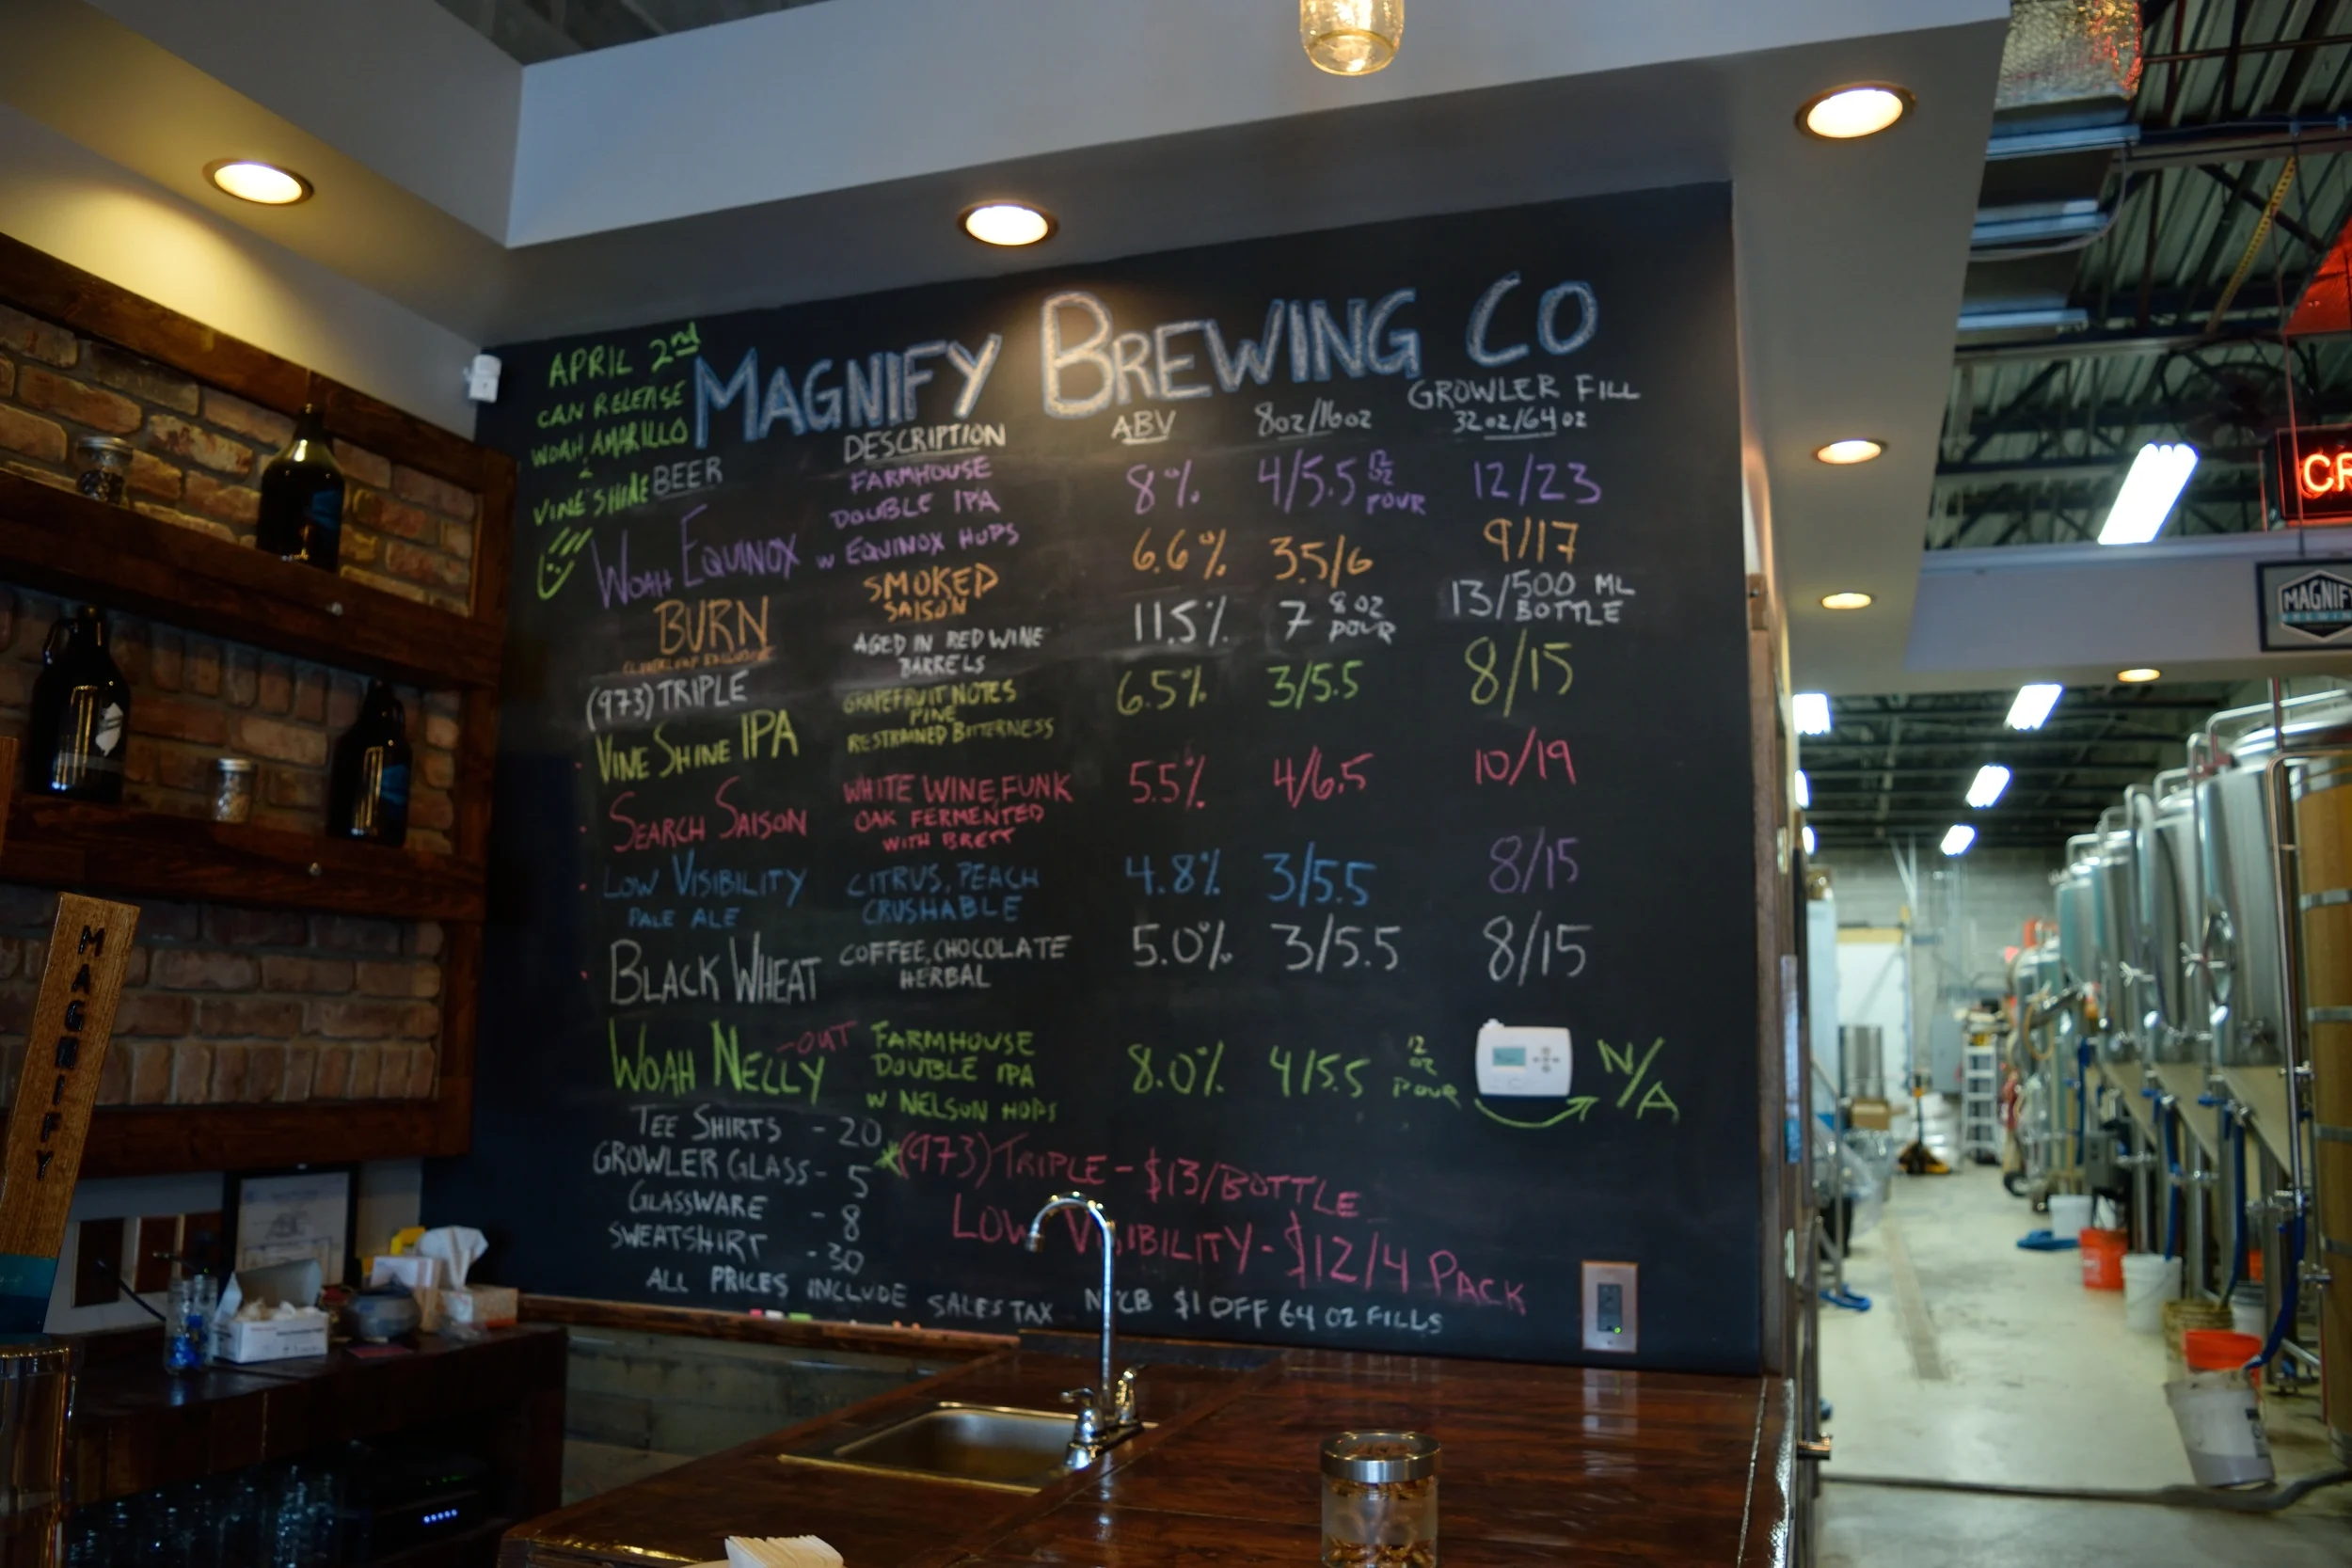 APRIL 2nd
CAN RELEASE
WOAH, AMARILLO
&
VINE SHINE
MAGNIFY BREWING CO
BEER
DESCRIPTION
ABV
8oz/16oz
GROWLER FILL
32oz/64oz
WOAH EQUINOX
FARMHOUSE
DOUBLE IPA
w EQUINOX HOPS
8%
4/5.5 12 oz POUR
12/23
BURN
SMOKED
SAISON
6.6%
3.5/6
9/17
(973) TRIPLE
AGED IN RED WINE
BARRELS
11.5%
7 8 OZ POUR
13/500 ML BOTTLE
VINE SHINE IPA
GRAPEFRUIT NOTES
PINE
RESTRAINED BITTERNESS
6.5%
3/5.5
8/15
SEARCH SAISON
WHITE WINE, FUNK
OAK FERMENTED
WITH BRETT
5.5%
4/6.5
10/19
LOW VISIBILITY
PALE ALE
CITRUS, PEACH
CRUSHABLE
4.8%
3/5.5
8/15
BLACK WHEAT
COFFEE, CHOCOLATE
HERBAL
5.0%
3/5.5
8/15
WOAH NELLY -OUT
FARMHOUSE
DOUBLE IPA
W NELSON HOPS
8.0%
4/5.5 12 oz POUR
N/A
TEE SHIRTS - 20
GROWLER GLASS - 5
GLASSWARE - 8
SWEATSHIRT - 30
*(973) TRIPLE - $13/BOTTLE
LOW VISIBILITY - $12/4 PACK
ALL PRICES INCLUDE SALES TAX $1 OFF 64 OZ FILLS
MAGNIFY
CR
MAGNIFY